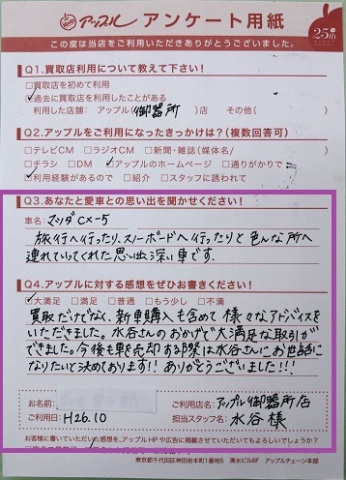 アップル アンケート用紙
25th
この度は当店をご利用いただきありがとうございました。
Q1.買取店利用について教えて下さい!
□買取店を初めて利用
☑過去に買取店を利用したことがある
利用した店舗: アップル(御器所)店 その他( )
Q2.アップルをご利用になったきっかけは?(複数回答可)
□テレビCM □ラジオCM □新聞・雑誌(媒体名/ )
□チラシ □DM ☑アップルのホームページ □通りがかりで
☑利用経験があるので □紹介 □スタッフに誘われて
Q3.あなたと愛車との思い出を聞かせください!
車名: マツダCX-5
旅行へ行ったり、スノーボードへ行ったりと色んな所へ
連れていってくれた思い出深い車です。
Q4.アップルに対する感想をぜひお書きください!
☑大満足 □満足 □普通 □もう少し □不満
買取だけでなく、新車購入も含めて様々なアドバイスを
いただきました。水谷さんのおかげで大満足な取引が
できました。今後も車を売却する際は水谷さんにお世話に
なりたいと決めております!!ありがとうございました!!!
お名前:
ご利用店名: アップル御器所店
ご利用日: H26.10
担当スタッフ名: 水谷様
お客様に書いていただいた感想を、アップルHPや広告に掲載させていただいてもよろしいでしょうか?
東京都千代田区神田岩本町1番地5 清水ビル6F アップルチェーン本部